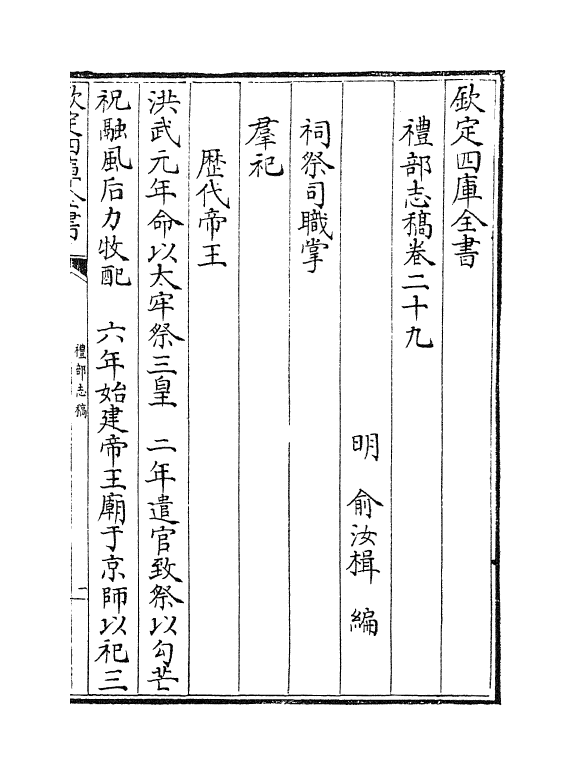 欽定四庫全書
禮部志稿卷二十九
明 俞汝楫 編
祠祭司職掌
羣祀
歴代帝王
洪武元年命以太牢祭三皇 二年遣官致祭以勾芒
祝融風后力牧配 六年始建帝王廟于京師以祀三
欽定四庫全書
禮部志稿
一